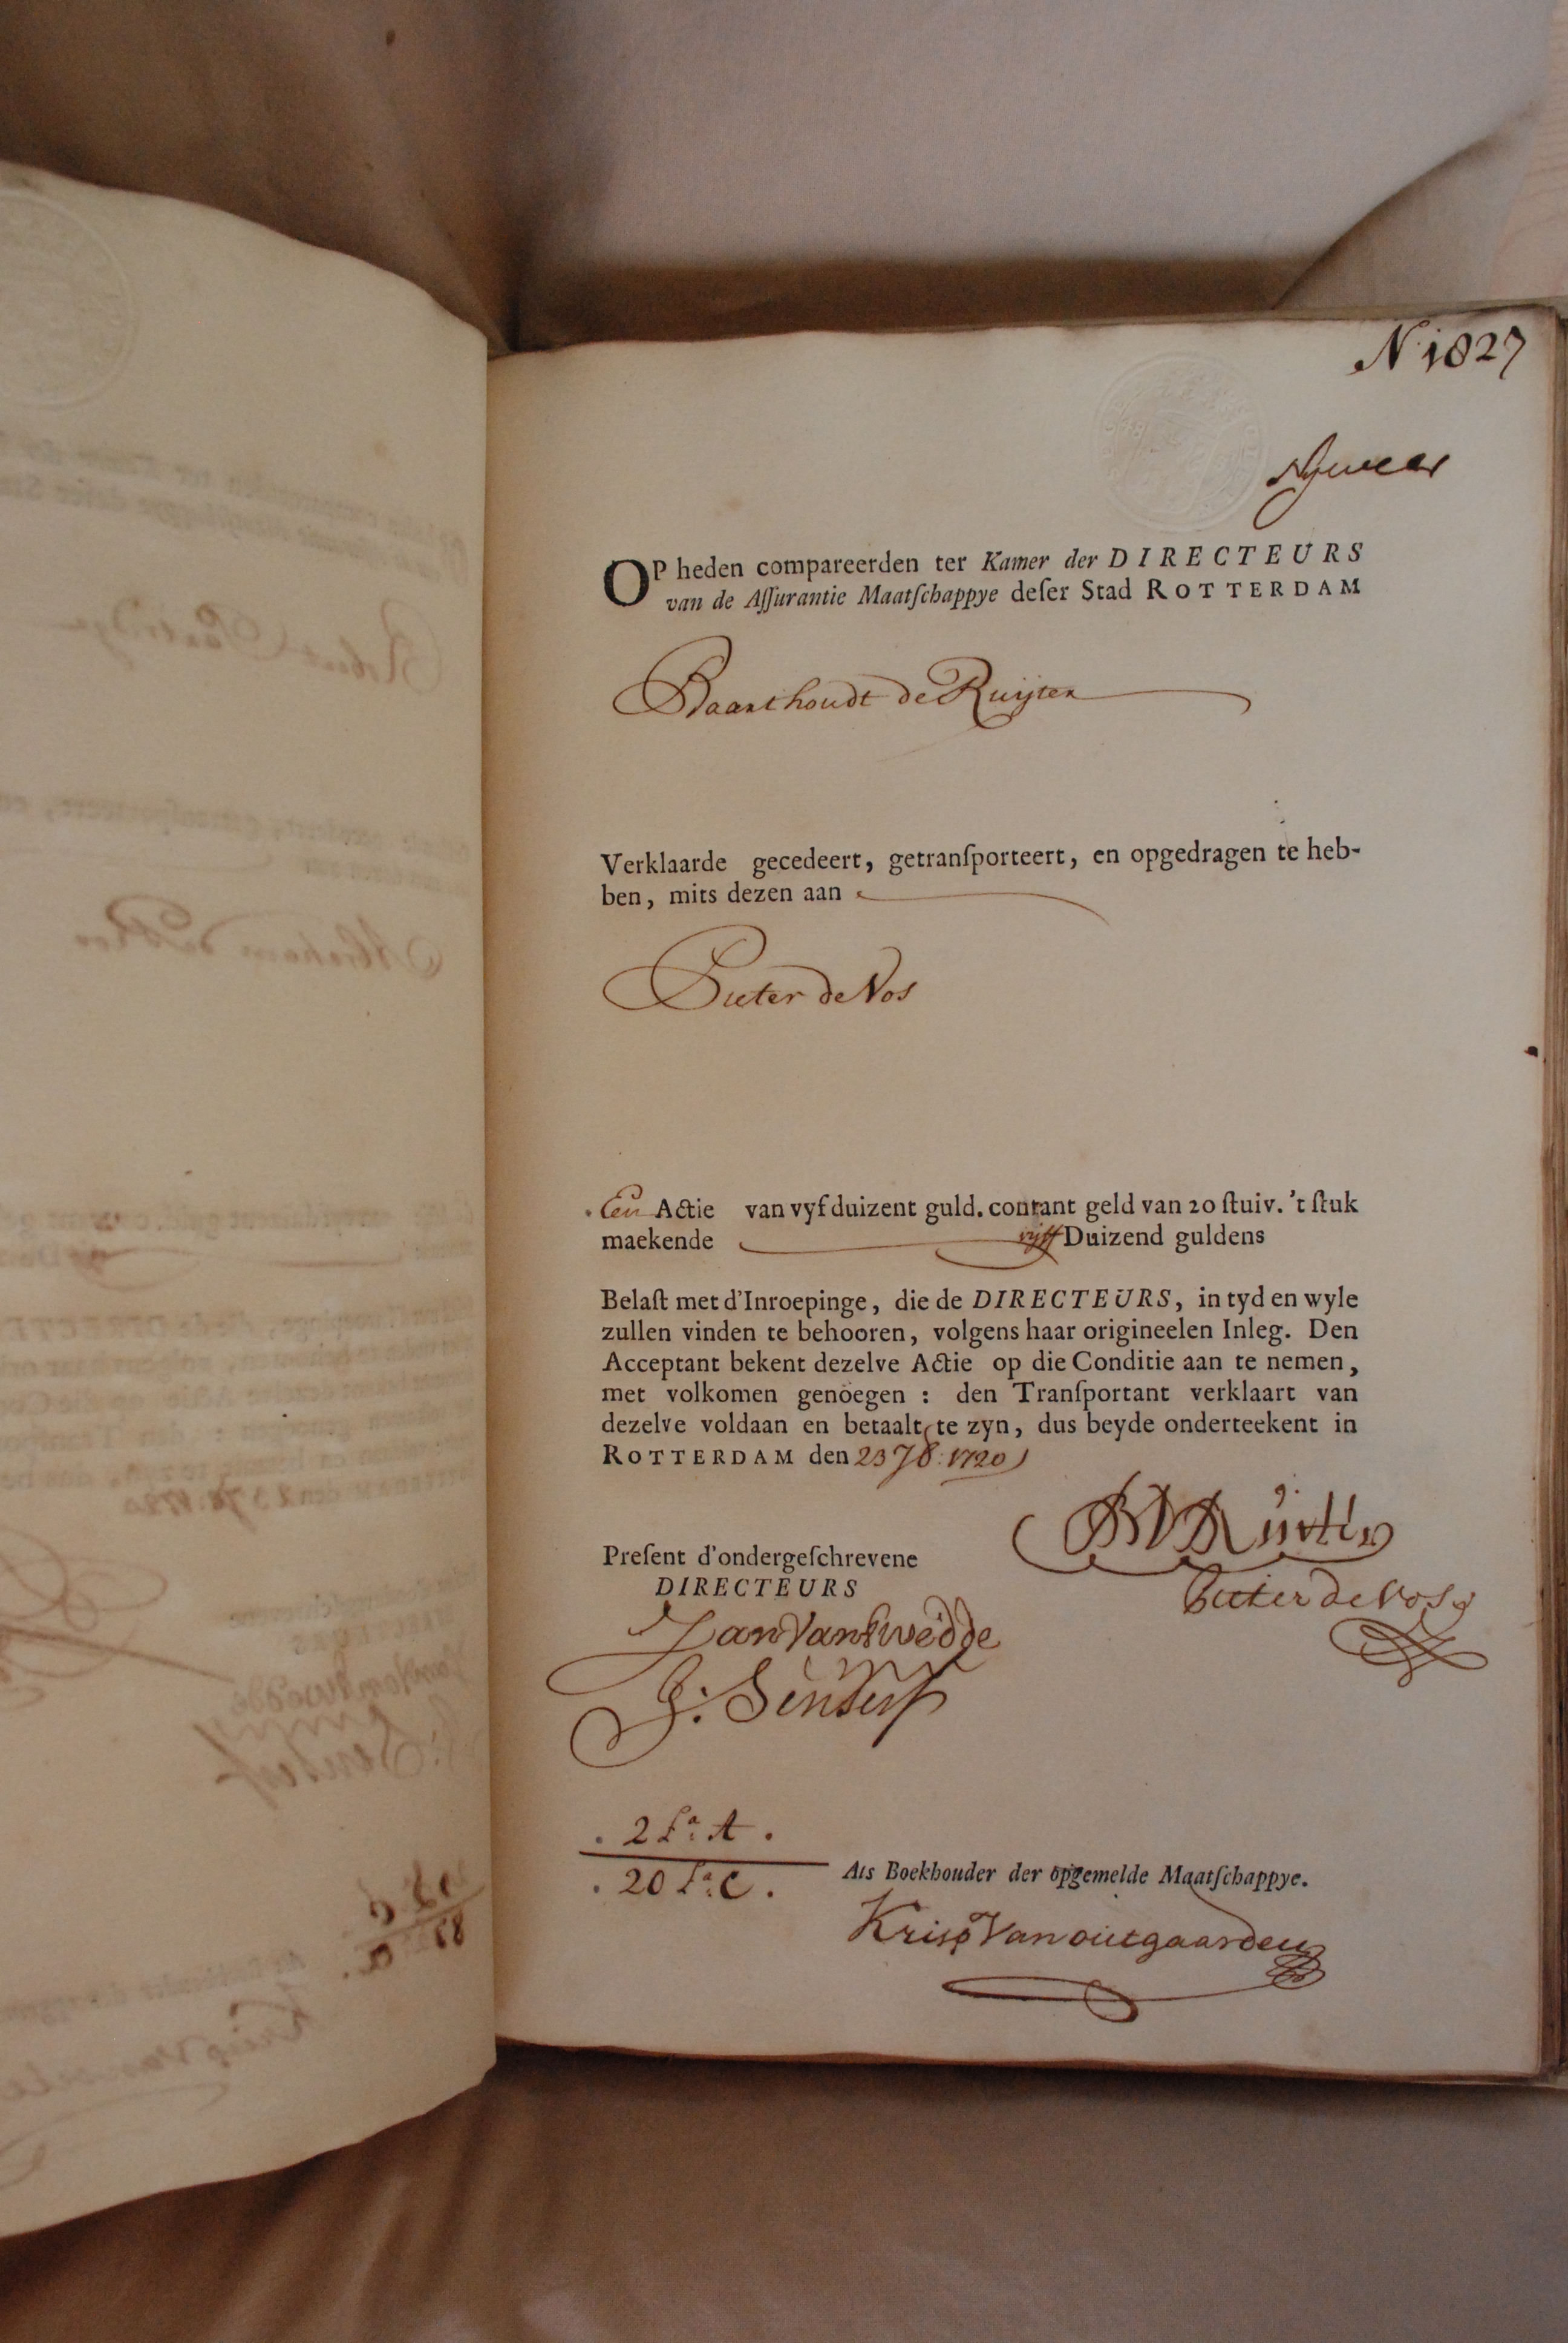 N. 1827
OP heden compareerden ter Kamer der DIRECTEURS
van de Aſſurantie Maatſchappye deſer Stad ROTTERDAM
Baarthoudt de Ruijter
Verklaarde gecedeert, getranſporteert, en opgedragen te heb-
ben, mits dezen aan
Pieter de Vos
Een Actie van vyf duizent guld. contant geld van 20 ſtuiv. 't ſtuk
maekende vijff Duizend guldens
Belaſt met d'Inroepinge, die de DIRECTEURS, in tyd en wyle
zullen vinden te behooren, volgens haar origineelen Inleg. Den
Acceptant bekent dezelve Actie op die Conditie aan te nemen,
met volkomen genoegen : den Tranſportant verklaart van
dezelve voldaan en betaalt te zyn, dus beyde onderteekent in
ROTTERDAM den 23 7b: 1720
Preſent d'ondergeſchrevene
DIRECTEURS
Pieter de Vos
. 2 La. A .
. 20 La. C .
Als Boekhouder der opgemelde Maatſchappye.
Krisp Van outgaarden